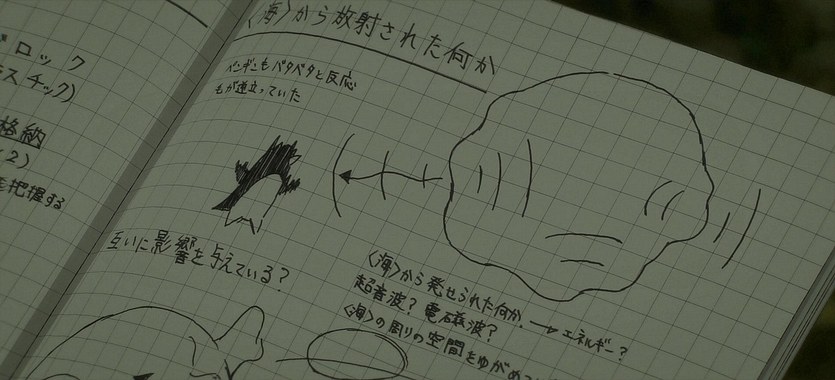 ロック
スチック)
格納
2)
を把握する
〈海〉から放射された何か
ペンギンもパタパタと反応
もが逆立っていた
互いに影響を与えている?
〈海〉から発せられた何か。→エネルギー?
超音波?電磁波?
〈海〉の周りの空間をゆがめ